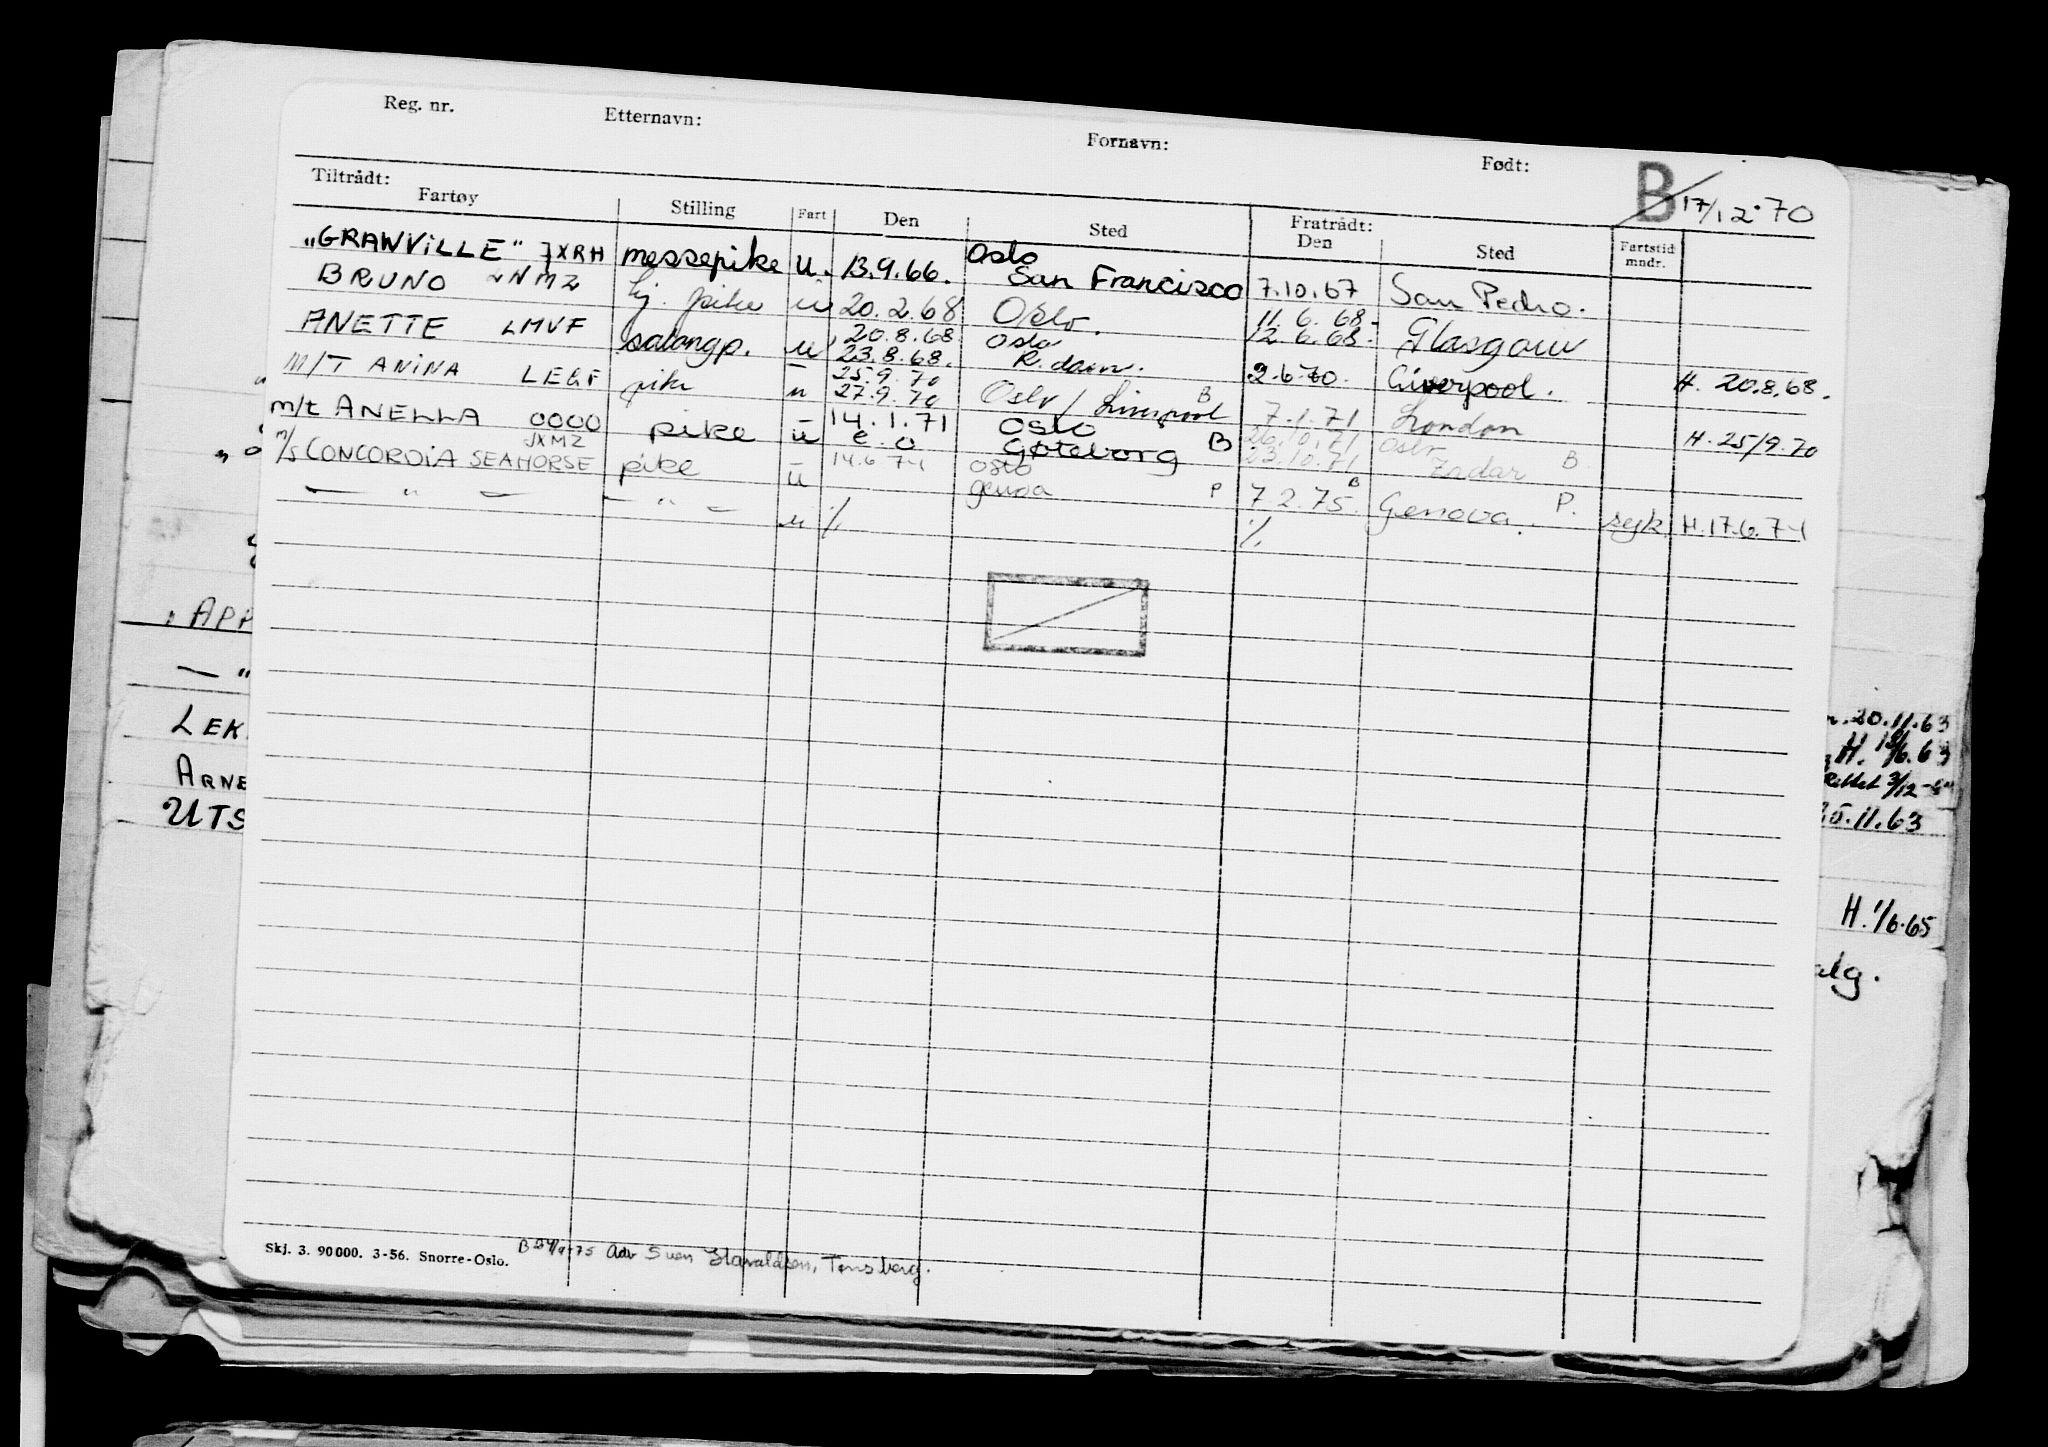 Reg. nr. Etternavn: Fornavn: Født:
B 17/12-70
Tiltrådt: Fartøy Stilling Fart Den Sted Fratrådt: Den Sted Fartstid mndr.
"GRANVILLE" JXRH messepike u. 13.9.66. Oslo San Francisco 7.10.67 San Pedro.
BRUNO LNMZ pike u 20.2.68 Oslo. 11.6.68- 12.6.68- Glasgow
ANETTE LMVF salongp. u 20.8.68 23.8.68. Oslo R.dam. 2.6.70. Liverpool. H. 20.8.68.
M/T ANINA LEGF pike u 25.9.70 27.9.70 Oslo / Liverpool B 7.1.71 London H. 25/9.70
m/t ANELLA 0000 pike u 14.1.71 e.o Oslo Gøteborg B 26.10.71 23.10.71 Oslo Zadar B
m/s CONCORDIA SEAHORSE JXMZ pike u 14.6.74 Oslo genoa P 7.2.75. B Genova. P. syk H. 17.6.74
— " — — " — u % %
: APP
— "
LEK
ARNE
UTS
20.11.63
H. 18/6.63
Rettet 3/12
25.11.63
H. 1/6.65
alg.
Skj. 3. 90000. 3-56. Snorre-Oslo.
B 24/9-75 Adv Sven Haraldsen, Tønsberg.